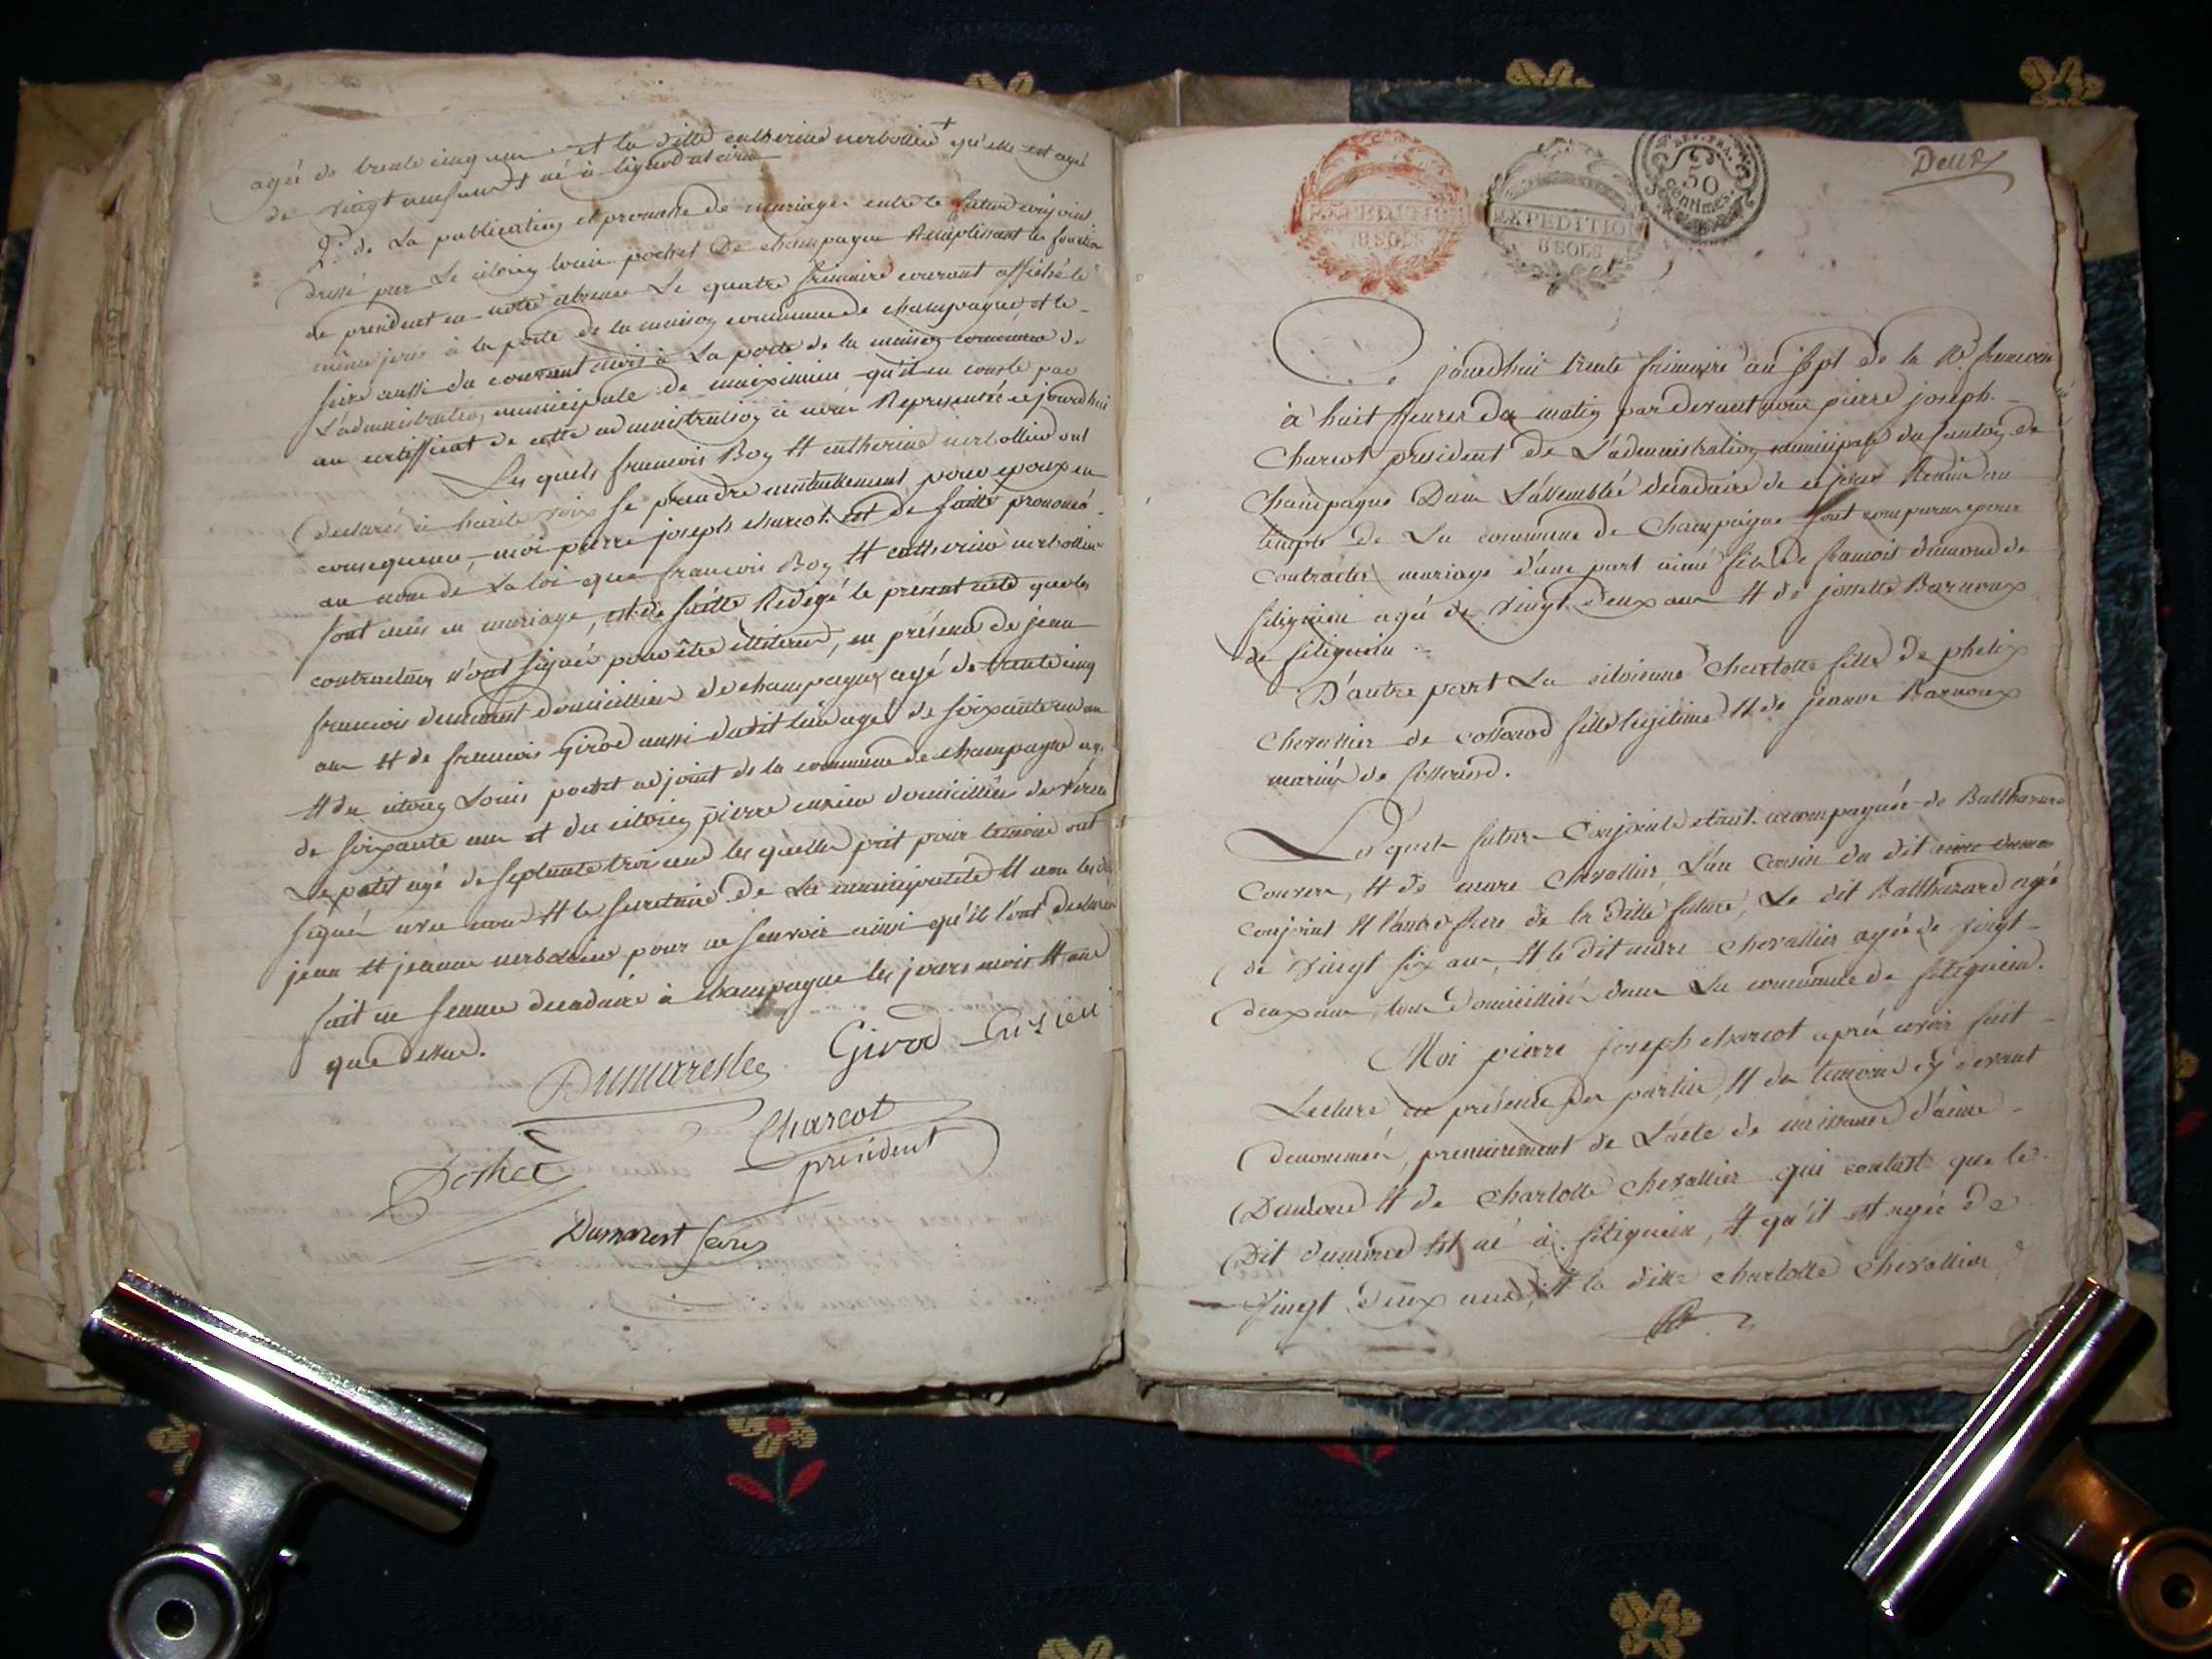 agée de trente cinq ans et la ditte catherine nerbollier + qu'elle est agée
de vingt neuf ans et né à
2.° de La publication et promesse de mariage entre le futur conjoint
dressé par Le citoien louis pochet De champagne Remplissant les fonction
de president en notre absence Le quatre frimaire courant affiché le
même jour à la porte de la maison commune de champagne et le
six aussi du courant mois à La porte de la maison commune de
L'administration municipale de maiximieu qu'il en conste par
un certifficat de cette administration à nous Representé cejourdhui
Les quels francois Boy et catherine nerbollier ont
declarés à haute voix se prendre mutuellement pour epoux en
consequence, moi pierre joseph charcot est de suitte prononcé
au nom de La loi que francois Boy et catherine nerbollier
sont unis en mariage, et de suitte Redigé le present acte que les
contractans n'ont signés pour être illiteres, en présence de jean
francois dumarest domicillier de champagne agé de trente cinq
ans et de francois girod aussi dudit lieu agé de soixante un an
et du citoien Louis pochet adjoint de la commune de champagne agé
de soixante ans et du citoien pierre cusieu domicillier de virieu
Le petit agé de septente trois ans les quelles prit pour temoins ont
signés avec nous et le secretaire de La municipalité et non les dits
jean et jeanne nerbollier pour ne scavoir ainsi qu'ils l'ont declarés
fait en seance decadaire à champagne les jours mois et an
que dessus.
Dumarest Girod Cusieu
Charcot
Pochet président
Dumarest secre
Deux
EXPEDITION
8 SOLS
EXPEDITION
8 SOLS
REP. FRA.
50
centimes
Cejourdhui trente frimaire an sept de la Re. francoise
à huit heures du matin par devant nous pierre joseph
Charcot president de L'administration municipale du canton de
Champagne Dans L'assemblée decadaire de ce jour Reunie au
temple de La commune de Champagne sont comparus pour
Contracter mariage d'une part aimé fils de francois dumond de
filignieu agé de vingt deux ans et de josette Barnoux
de filignieu
D'autre part La citoienne Charlotte fille de phelix
Chevallier de fille legitime et de jeanne Barnoux
mariés de
Les quels futurs Conjoints etant accompagnés de Balthazard
et de andre Chevallier, L'un Cousin du dit
conjoint et l'autre frere de la ditte future, Le dit Balthazard agé
de vingt six ans, et le dit andre Chevallier agé de vingt
deux ans, tous Domicilliés dans La commune de filignieu.
Moi pierre joseph charcot après avoir fait
Lecture en présence des parties, et des temoins cy devant
denommés, premierement de L'acte de naissance d'aimé
Dumond et de Charlotte Chevallier qui conste que le
Dit dumond Est né à filignieu, et qu'il est agé de
vingt Deux ans, et la ditte charlotte Chevallier